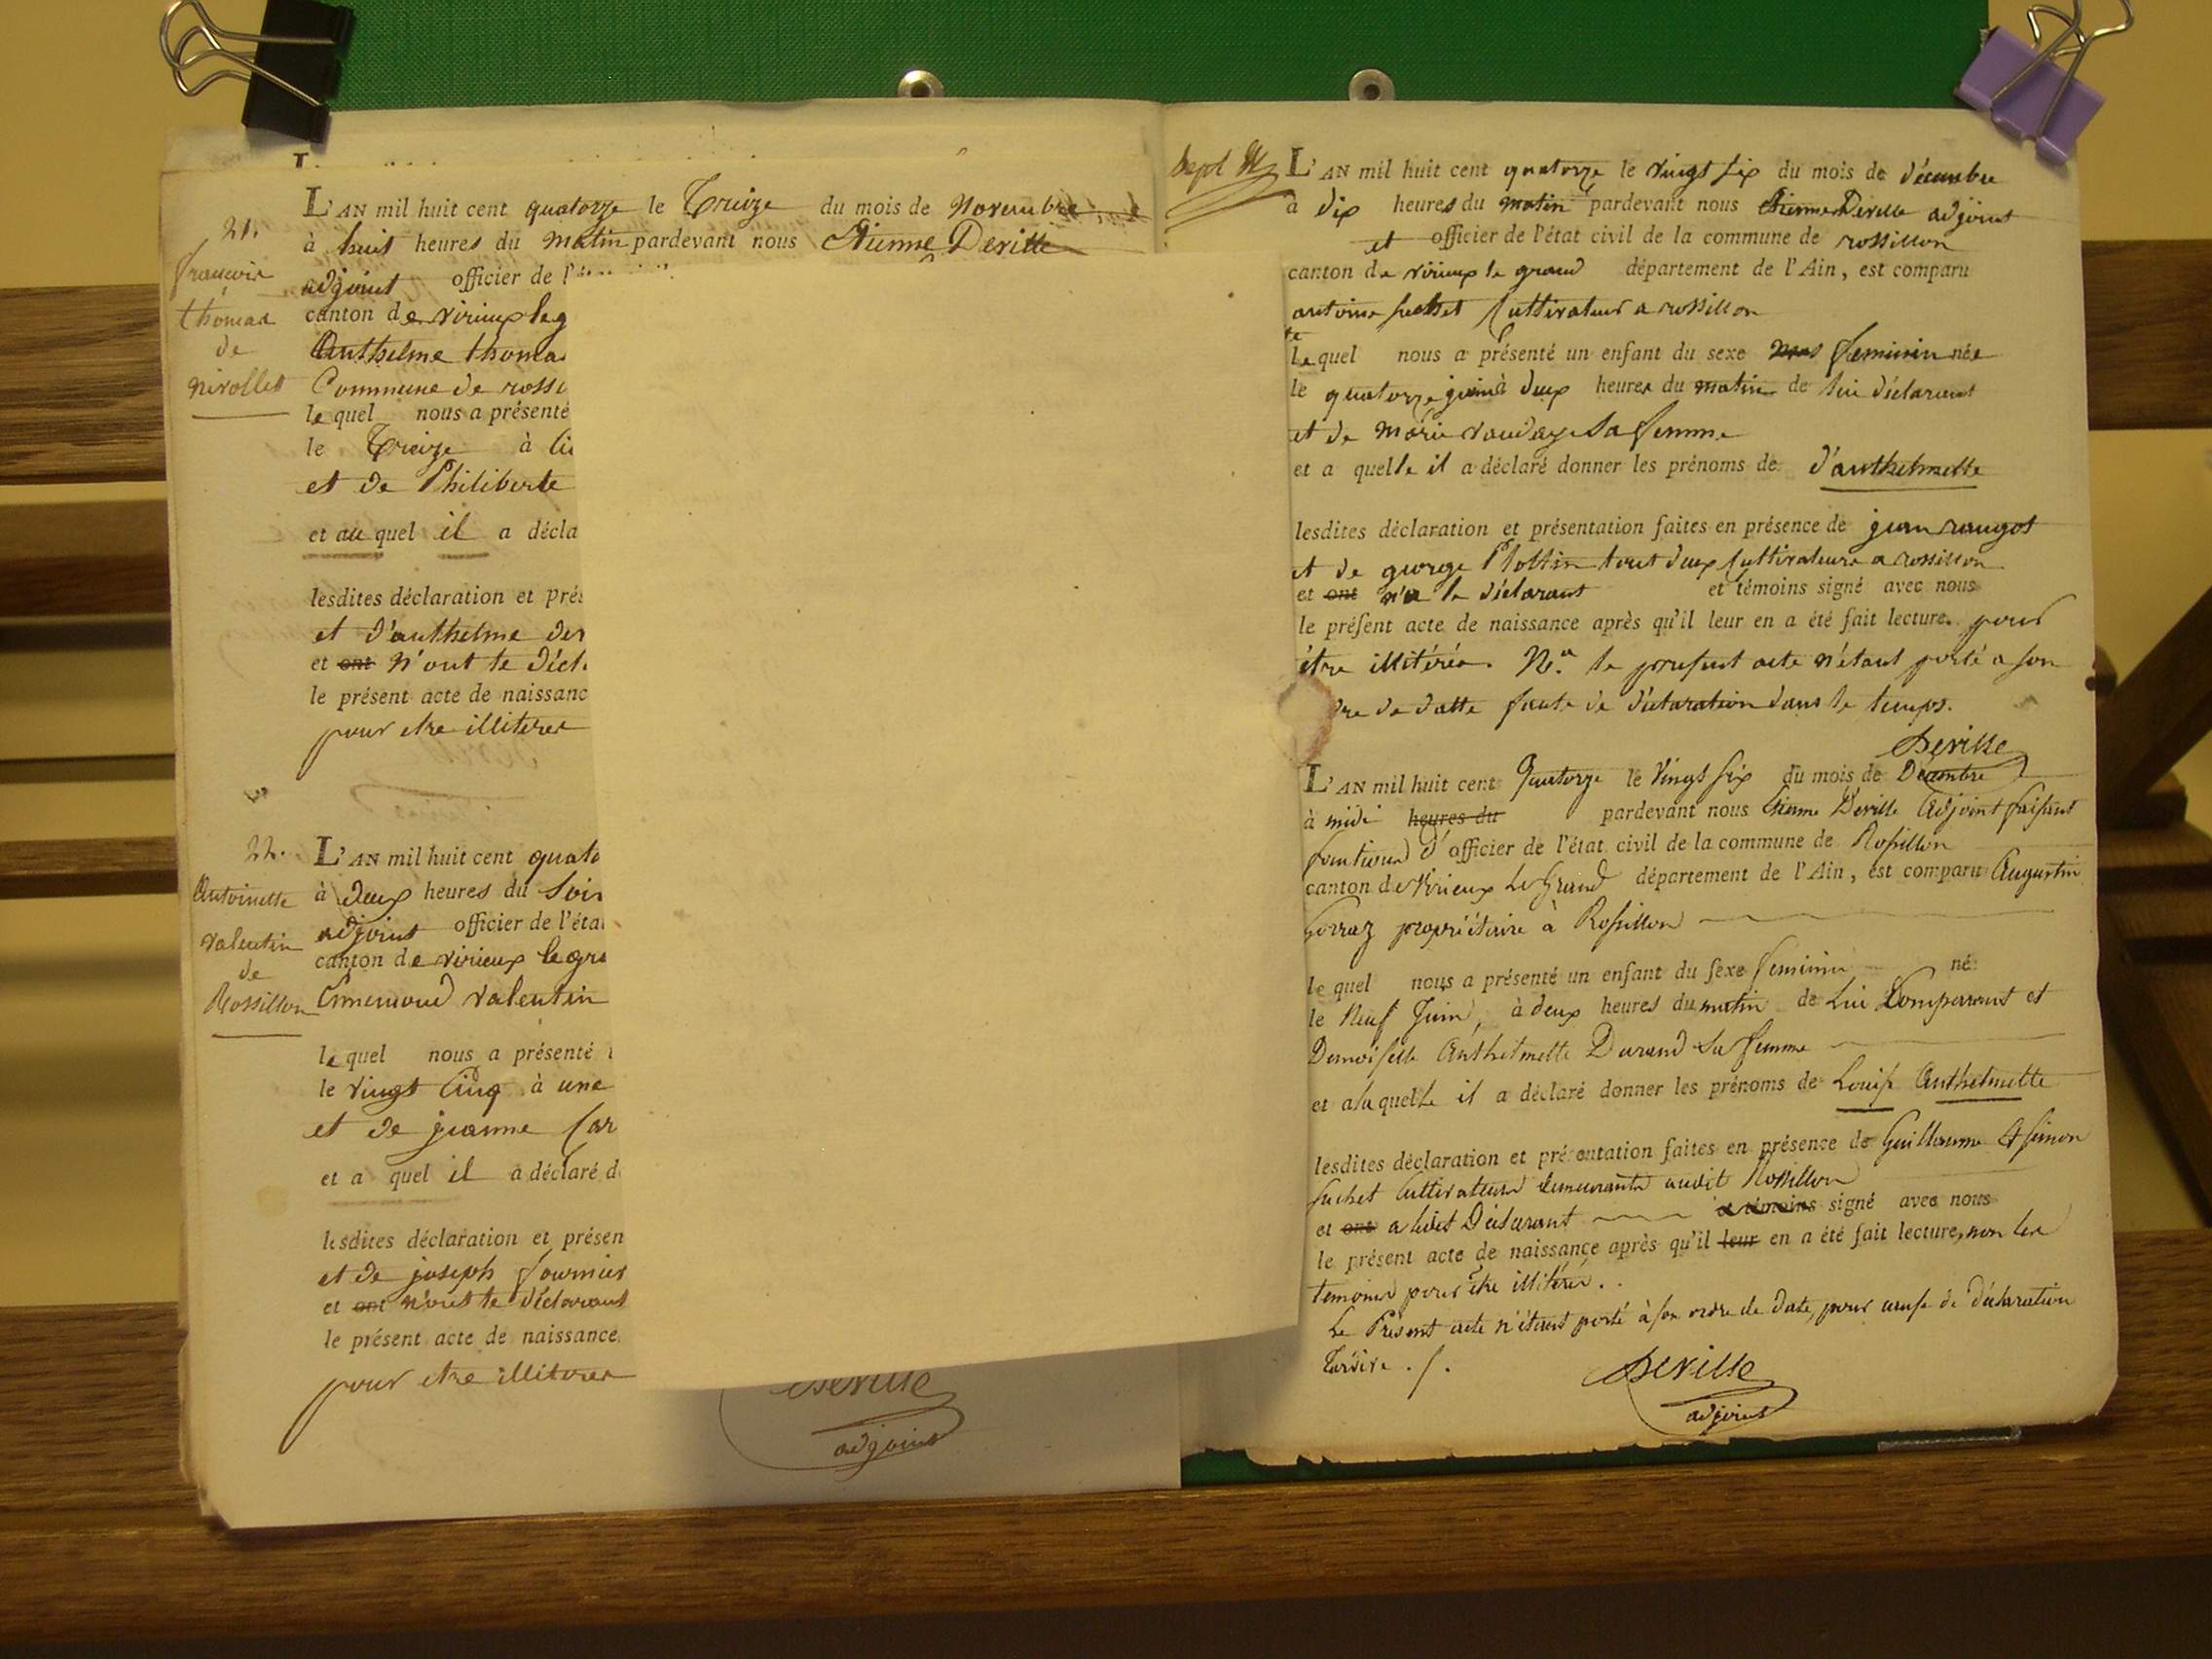 21.
françois
thomas
de
nivollet
L'AN mil huit cent quatorze le Treize du mois de Novembre
à huit heures du matin pardevant nous Etienne Deville
adjoint officier de l'
canton de virieux le g
Anthelme thomas
Commune de rossi
lequel nous a présenté
le Treize à
et de Philiberte
et au quel il a décla
lesdites déclaration et prés
et d'anthelme der
et ont n'ont le décl
le présent acte de naissanc
pour etre illiterer
22.
Antoinette
valentin
de
Rossillon
L'AN mil huit cent quato
à Deux heures du Soir
adjoint officier de l'éta
canton de virieux le gra
Ennemond valentin
lequel nous a présenté
le vingt Cinq à une
et de jeanne Car
et a quel il a déclaré d
lesdites déclaration et présen
et de joseph fournier
et ont n'ont le déclarant
le présent acte de naissance
pour etre illiterer
Deville
adjoint
L'AN mil huit cent quatorze le vingt six du mois de décembre
à dix heures du matin pardevant nous Etienne Deville adjoint
et officier de l'état civil de la commune de rossillon
canton de virieux le grand département de l'Ain, est comparu
antoine suchet Cultivateur a rossillon
lequel nous a présenté un enfant du sexe mas feminin née
le quatorze juin à deux heures du matin de lui déclarant
et de marie vauday sa femme
et a quelle il a déclaré donner les prénoms de d'anthelmette
lesdites déclaration et présentation faites en présence de jean raugot
et de george tout deux Cultivateurs a rossillon
et ont n'a le déclarant et témoins signé avec nous
le présent acte de naissance après qu'il leur en a été fait lecture. pour
être illitérés. Na. le present acte n'étant porté a son
dre de datte faute de déclaration dans le temps.
Deville
L'AN mil huit cent Quatorze le Vingt six du mois de Décembre
à midi heures du pardevant nous Etienne Deville Adjoint faisant
fonctions d'officier de l'état civil de la commune de Rossillon
canton de Virieux Le Grand département de l'Ain, est comparu Augustin
Gorraz propriétaire à Rossillon
lequel nous a présenté un enfant du sexe feminin né
le Neuf Juin, à deux heures du matin de Lui Comparant et
Demoiselle Anthelmette Durand Sa femme
et a la quelle il a déclaré donner les prénoms de Louise Anthelmette
lesdites déclaration et présentation faites en présence de Guillaume & Simon
Suchet Cultivateurs demeurants audit Rossillon
et ont a ledit Déclarant et témoins signé avec nous
le présent acte de naissance après qu'il leur en a été fait lecture, non les
temoins pour être illitérés.
Le Présent acte n'étant porté à son ordre de Date, pour cause de déclaration
Tardive.
Deville
adjoint